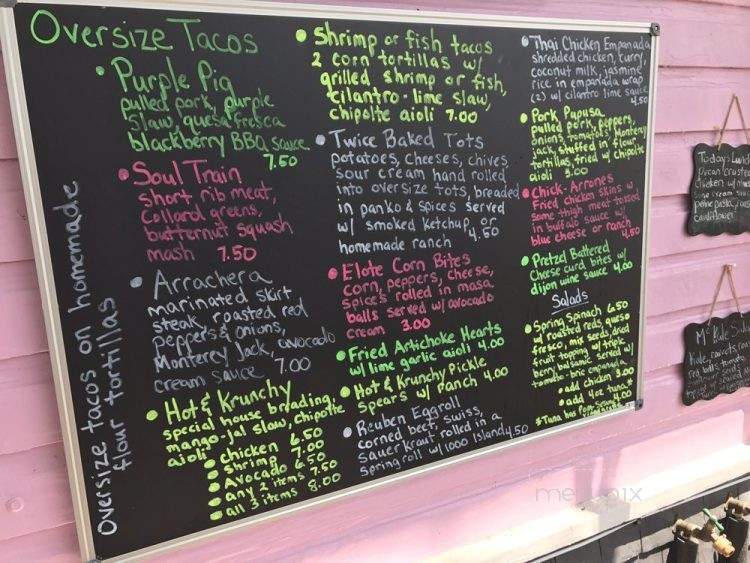 Oversize Tacos
• Purple Pig
pulled pork, purple
slaw, quesa fresca
blackberry BBQ sauce
7.50
• Soul Train
short rib meat,
collard greens,
butternut squash
mash 7.50
• Arrachera
marinated skirt
steak, roasted red
peppers & onions,
Monterey Jack, avocado
cream sauce 7.00
• Hot & Krunchy
special house breading,
mango-jal slaw, chipotle
aioli
• chicken 6.50
• shrimp 7.00
• Avocado 6.50
• any 2 items 7.50
• all 3 items 8.00
Oversize tacos on homemade
flour tortillas
• Shrimp or fish tacos
2 corn tortillas w/
grilled shrimp or fish,
cilantro-lime slaw,
chipolte aioli 7.00
• Twice Baked Tots
potatoes, cheeses, chives,
sour cream hand rolled
into oversize tots, breaded
in panko & spices served
w/ smoked ketchup or
homemade ranch 4.50
• Elote Corn Bites
corn, peppers, cheese,
spices rolled in masa
balls served w/ avocado
cream 3.00
• Fried Artichoke Hearts
w/ lime garlic aioli 4.00
• Hot & Krunchy Pickle
Spears w/ ranch 4.00
• Reuben Eggroll
corned beef, swiss,
sauerkraut rolled in a
Springroll w/ 1000 Island 4.50
• Thai Chicken Empanada
shredded chicken, curry,
coconut milk, jasmine
rice in empanada wrap
(2) w/ cilantro lime sauce
4.50
• Pork Pupusa
pulled pork, peppers,
onions, tomatoes, Monterey
jack, stuffed in flour
tortillas, fried w/ chipotle
aioli 5.00
• Chick-Arrones
Fried chicken skins w/
some thigh meat tossed
in buffalo sauce w/
blue cheese or ranch
4.50
• Pretzel Battered
Cheese curd bites w/
dijon wine sauce 4.00
Salads
• Spring Spinach 6.50
w/ roasted reds, queso
fresco, mix seeds, dried
fruit topping w/ triple
berry balsamic served w/
tomato-brie empanada
• add chicken 3.00
• add 4oz tuna*
*Tuna has
Todays Lunch
Pecan crusted
chicken w/
cauliflower